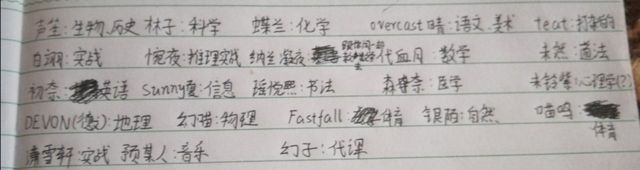 声笙:生物.历史 林子:科学 蝶兰:化学 overcast晴:语文.美术 teat:打杂的
白翊:实战 惋夜:推理实战 纳兰凝夜: 代血月:数学 未然:道法
初奈:英语 Sunny夏:信息 瑶悦熙:书法 森奈奈:医学 未铃紫:心理学(?)
DEVON(德):地理 幻喵:物理 Fastfall:体育 银陌:自然 喵鸣:体育
清雪轩:实战 预某人:音乐 幻子:代课